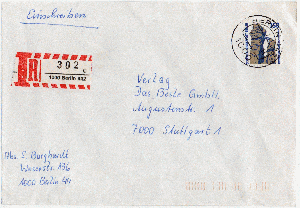 Einschreiben
R
392
c
1000 Berlin 442
Verlag
Das Beste GmbH,
Augustenstr. 1
7000 Stuttgart 1
Abs. E. Burghardt
Weserstr. 136
1000 Berlin 44